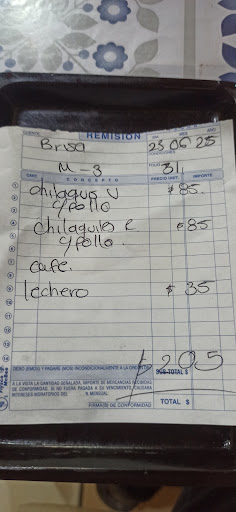 REMISIÓN
CLIENTE
Brisa
DIA MES AÑO
23 06 25
M-3
FOLIO
31
CANT. CONCEPTO PRECIO UNIT. IMPORTE
1
chilaquil V $85.
2
c/pollo
3
chilaquils R $85
4
c/pollo.
5
6
cafe.
7
lechero $35
8
9
10
11
12
13
14
$ 205
DEBO (EMOS) Y PAGARE (MOS) INCONDICIONALMENTE A LA ORDEN DE SUB-TOTAL $
A LA VISTA LA CANTIDAD SEÑALADA, IMPORTE DE MERCANCIAS RECIBIDAS
DE CONFORMIDAD. SI NO FUERA PAGADA A SU VENCIMIENTO CAUSARA
INTERESES MORATORIOS DEL % MENSUAL.
FIRMA(S) DE CONFORMIDAD TOTAL $